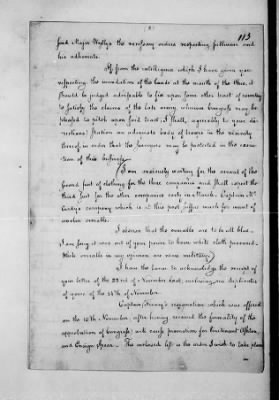 113
send Major Wyllys the necessary orders respecting Sullivan and
his adherents.
If from the intelligence which I have given you
respecting the inundation of the lands at the mouth of the
should be judged advisable to fix upon some other tract of country
to satisfy the claims of the late army, whenever Congress may be
pleased to pitch upon said tract, I shall, agreeably to your di-
rections, station an adequate body of troops in the vicinity
thereof in order that the surveyors may be protected in the execu-
tion of this business.
I am anxiously waiting for the arrival of the
second part of clothing for the three companies and shall expect the
third part for the other companies early in March. Captain Mc
Curdy's company which is at this post suffers much for want of
woolen overalls.
I observe that the overalls are to be all blue.
I am sorry it was out of your power to have white cloth procured.
White overalls in my opinion are more military.
I have the honor to acknowledge the receipt of
your letter of the 22nd of November last, enclosing one duplicate
of yours of the 14th of November.
Captain resignation which was offered
on the 10th November, after having received the formality of the
approbation of Congress, will cause promotion for Lieutenant
and Ensign The enclosed list is the order I wish to take place